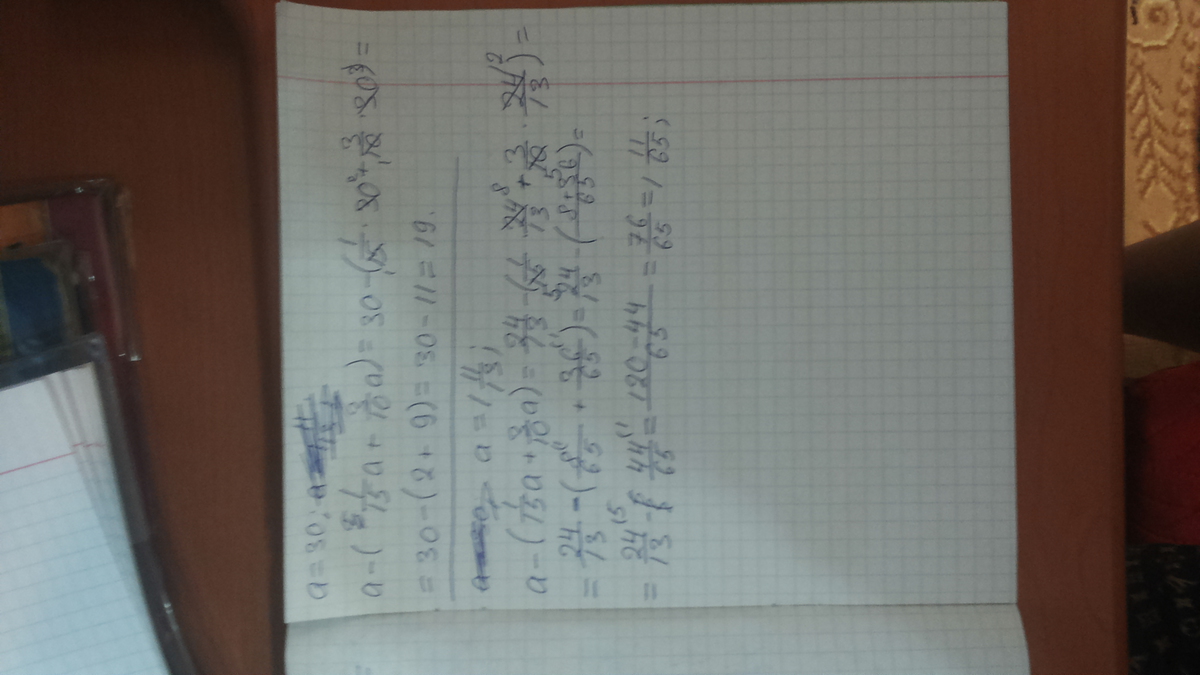 a = 30;
a - (1/15 a + 3/10 a) = 30 - (1/15 · 30² + 3/10 · 30³) =
= 30 - (2 + 9) = 30 - 11 = 19.
a = 1 11/13;
a - (1/15 a + 3/10 a) = 24/13 - (1/15 · 24⁸/13 + 3/10 · 24¹²/13) =
= 24/13 - (8/65 + 36/65) = 24/13 - (8+36/65) =
= 24/13 - 44/65 = 120-44/65 = 76/65 = 1 11/65;